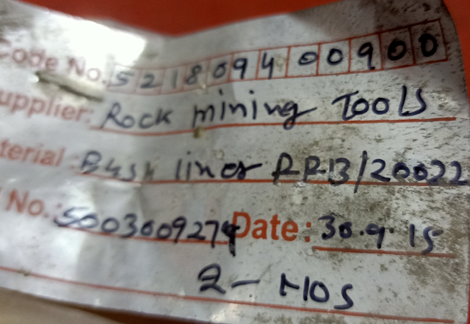 Code No. 5218094 00900
upplier: Rock mining Tools
terial: Bush liner RP.13/20022
No.: 5003609274 Date: 30.9.15
2 - NOS